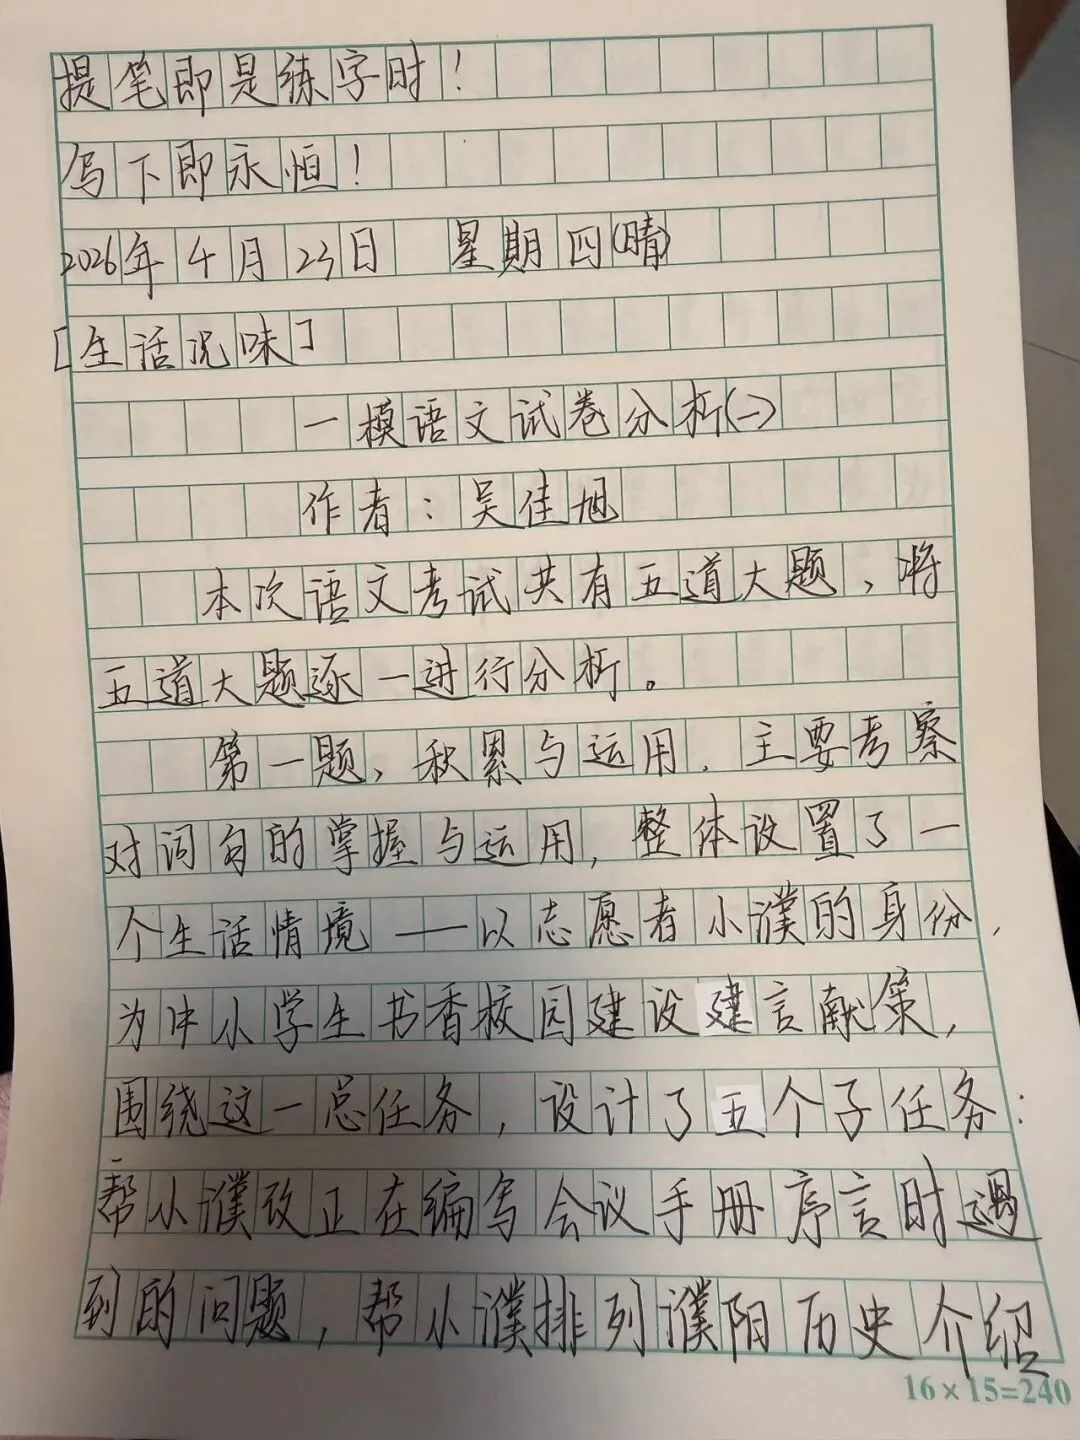 提笔即是练字时！
写下即永恒！
2026年4月23日 星期四(晴)
[生活况味]
一模语文试卷分析(一)
作者：吴佳旭
本次语文考试共有五道大题，将
五道大题逐一进行分析。
第一题，积累与运用．主要考察
对词句的掌握与运用，整体设置了一
个生活情境——以志愿者小濮的身份，
为中小学生书香校园建设建言献策，
围绕这一总任务，设计了五个子任务：
帮小濮改正在编写会议手册序言时遇
到的问题，帮小濮排列濮阳历史介绍
16×15=240